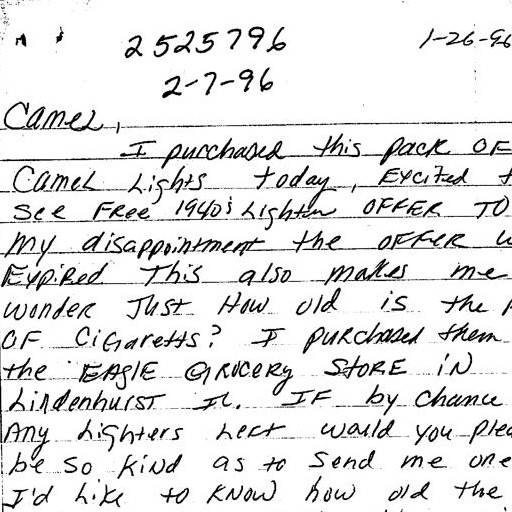 2525796 1-26-96
2-7-96
Camel,
I purchased this pack OF
Camel Lights today, Excited
See Free 1940's Lighter OFFER TO
my disappointment the OFFER
Expired This also makes me
wonder Just How old is the
OF Cigaretts? I purchased them
the EAGLE GROCERY STORE IN
Lindenhurst IL. IF by chance
Any Lighters Left would you
be so kind as to send me one
I'd Like to KNOW how old the